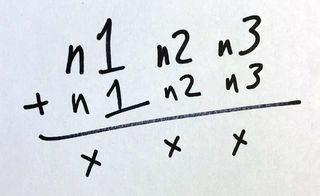 n1 n2 n3
+ n1 n2 n3
x x x